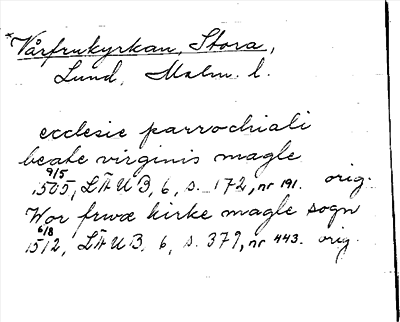 *Vårfrukyrkan, Stora,
Lund, Malm. l.
ecclesie parrochiali
beate virginis magle
9/5 1505, LÄUB, 6, s. 172, nr 191. orig.
Wor frwæ kirke magle sogn
6/8 1512, LÄUB, 6, s. 379, nr 443. orig.